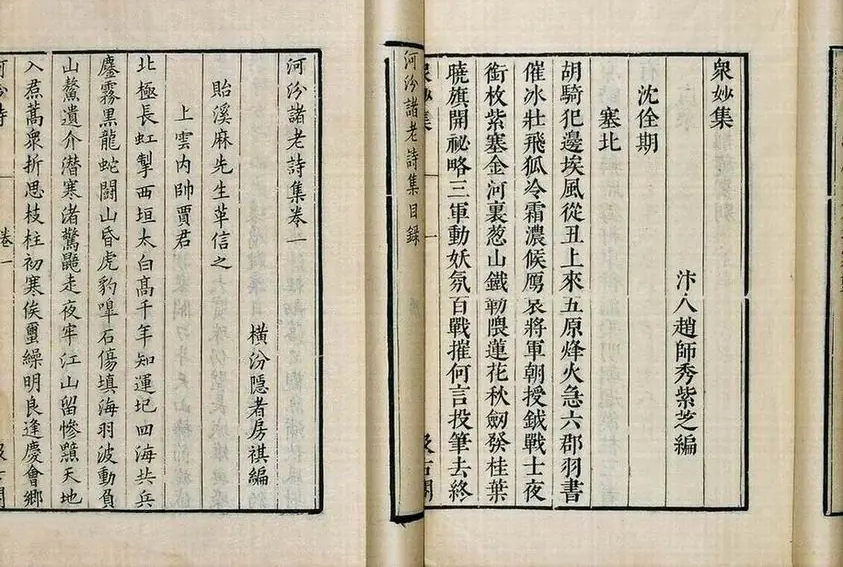 衆妙集
汴人趙師秀紫芝編
沈佺期
塞北
胡騎犯邊埃風從丑上來五原烽火急六郡羽書
催冰壯飛狐冷霜濃候鴈哀將軍朝授鉞戰士夜
銜枚紫塞金河裏葱山鐵勒隈蓮花秋劒發桂葉
曉旗開祕略三軍動妖氛百戰摧何言投筆去終
衆妙集 一 汲古閣
河汾諸老詩集目録
河汾諸老詩集卷一
橫汾隱者房祺編
貽溪麻先生革信之
上雲内帥賈君
北極長虹掣西垣太白髙千年知運圮四海共兵
鏖霧黑龍蛇鬭山昏虎豹嘷石傷填海羽波動負
山鰲遺介潛寒渚驚鼯走夜牢江山留慘黯天地
入焄蒿衆折思枝柱初寒俟璽繰明良逢慶會鄉
河汾詩 卷一 汲古閣